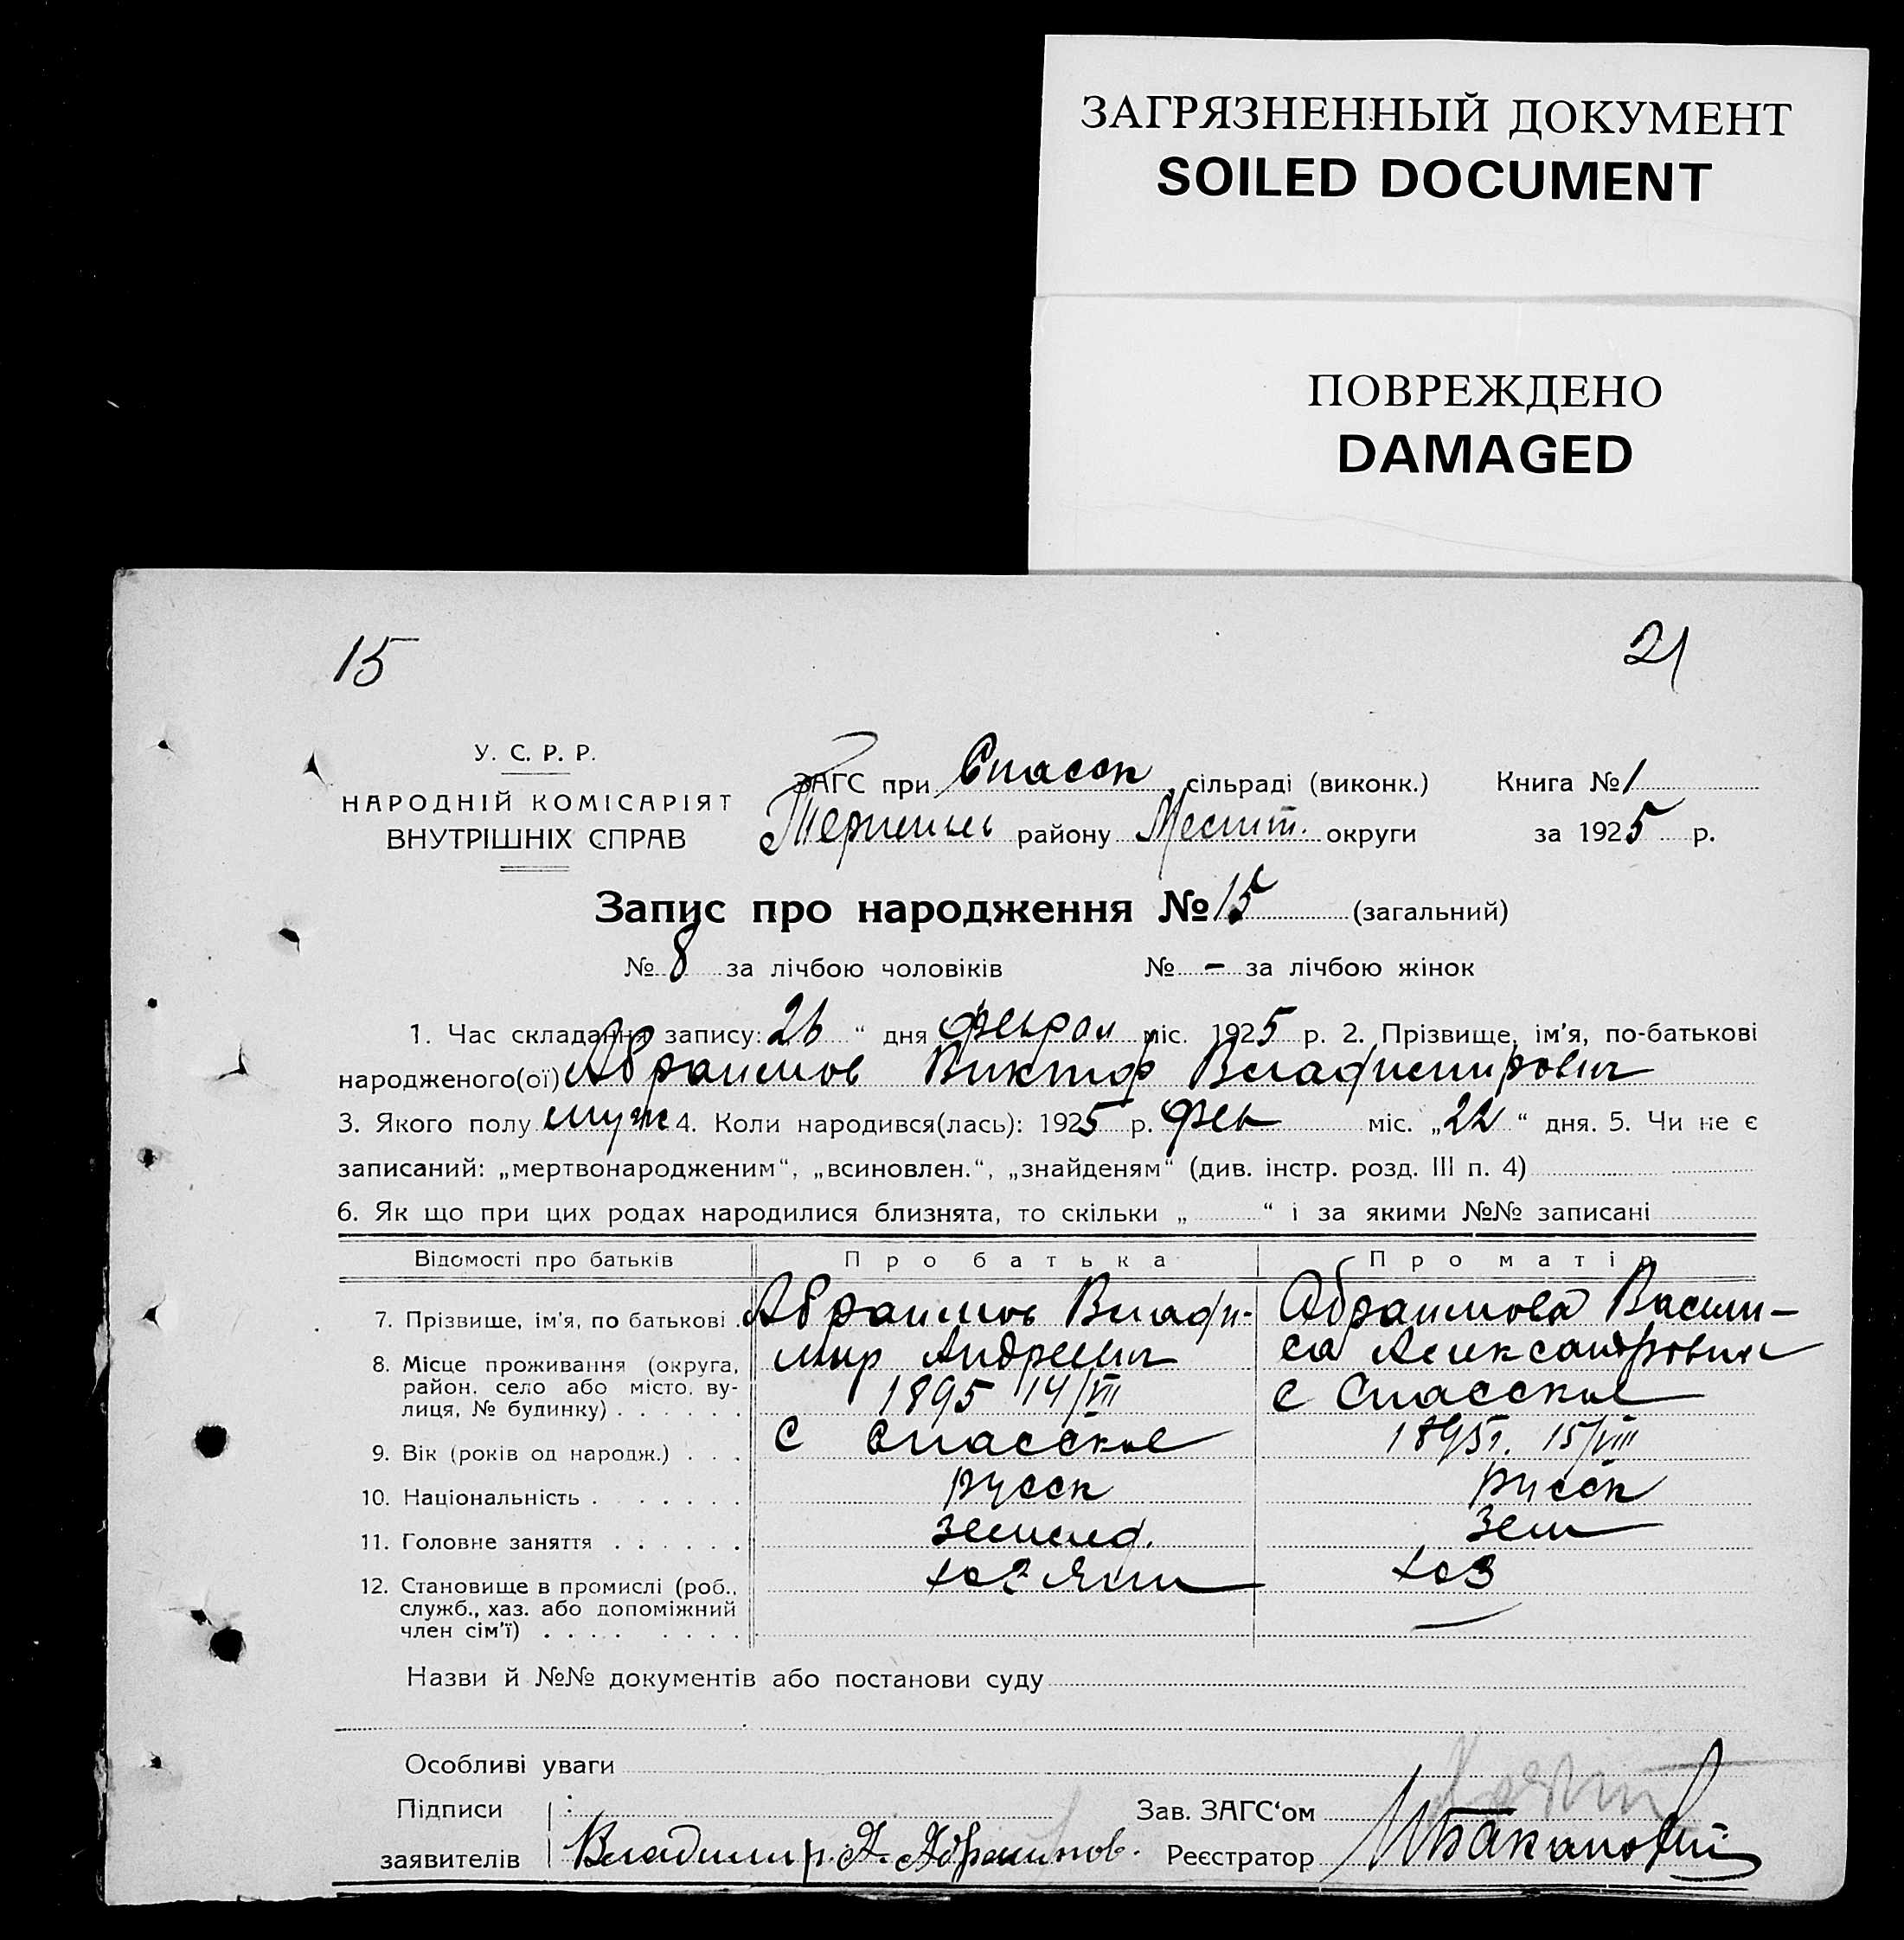 ЗАГРЯЗНЕННЫЙ ДОКУМЕНТ
SOILED DOCUMENT
ПОВРЕЖДЕНО
DAMAGED
15
21
У. С. Р. Р.
НАРОДНІЙ КОМІСАРІЯТ
ВНУТРІШНІХ СПРАВ
ЗАГС при Спасск сільраді (виконк.) Книга № 1
району округи за 1925 р.
Запис про народження № 15 (загальний)
№ 8 за лічбою чоловіків № - за лічбою жінок
1. Час складання запису: 26 “ дня феврал міс. 1925 р. 2. Прізвище, ім'я, по-батькові
народженого(ої) Абраимов Виктор Владимирович
3. Якого полу муж 4. Коли народився(лась): 1925 р. фев міс. „22“ дня. 5. Чи не є
записаний: „мертвонародженим“, „всиновлен.“, „знайденям“ (див. інстр. розд. III п. 4)
6. Як що при цих родах народилися близнята, то скільки „ “ і за якими №№ записані
Відомості про батьків Про батька Про матір
7. Прізвище, ім'я, по батькові . Абраимов Влади- Абраимова Васи-
8. Місце проживання (округа, мир Андреевич са Александровна
район. село або місто. ву- 1895 14/VII с Спасское
лиця, № будинку) . . . . . .
9. Вік (років од народж.) . . . с Спасское 1895г. 15/VIII
10. Національність . . . . . . . русск русск
11. Головне заняття . . . . . . землед. зем
12. Становище в промислі (роб., хоз
служб., хаз. або допоміжний
член сім'ї) . . . . . . . .
Назви й №№ документів або постанови суду
Особливі уваги
Підписи Зав. ЗАГС‘ом
заявителів Владимир. А. Абраимов. Реєстратор